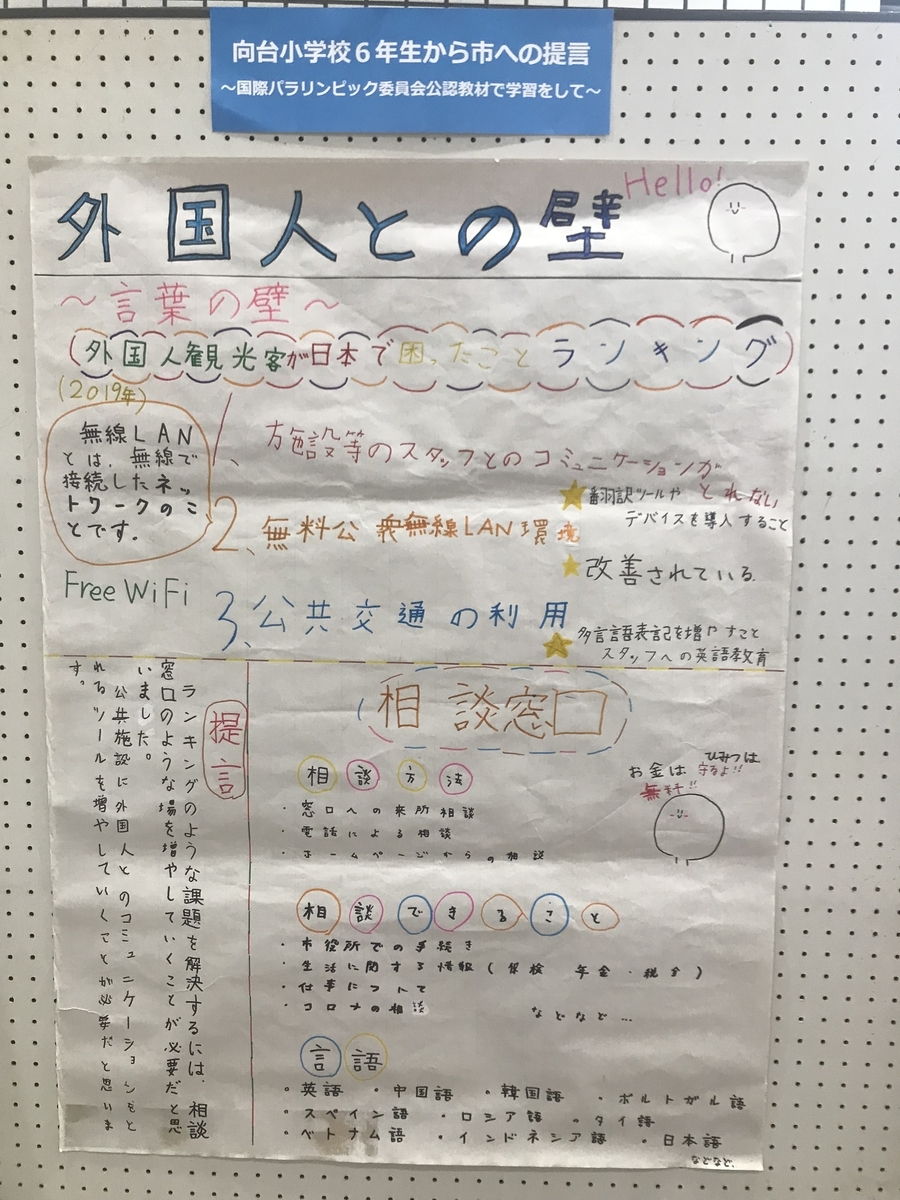 向台小学校6年生から市への提言
〜国際パラリンピック委員会公認教材で学習をして〜
外国人との壁
Hello!
〜言葉の壁〜
(外国人観光客が日本で困ったことランキング)
(2019年)
無線LAN
とは、無線で
接続したネッ
トワークのこ
とです。
1、施設等のスタッフとのコミュニケーションが
とれない
翻訳ツールや
デバイスを導入すること
2、無料公衆無線LAN環境
改善されている
Free WiFi
3、公共交通の利用
多言語表記を増やすこと
スタッフへの英語教育
提言
ランキングのような課題を解決するには、相談
窓口のような場を増やしていくことが必要だと思
いました。
公共施設に外国人とのコミュニケーションをと
れるツールを増やしていくことが必要だと思いま
す。
相談窓口
ひみつは
守るよ!!
お金は
無料!!
相談方法
・窓口への来所相談
・電話による相談
・ホームページからの相談
相談できること
・市役所での手続き
・生活に関する情報(保険 年金・税金)
・仕事について
・コロナの相談
などなど…
言語
・英語 ・中国語 ・韓国語 ・ポルトガル語
・スペイン語 ・ロシア語 ・タイ語
・ベトナム語 ・インドネシア語 ・日本語
などなど、